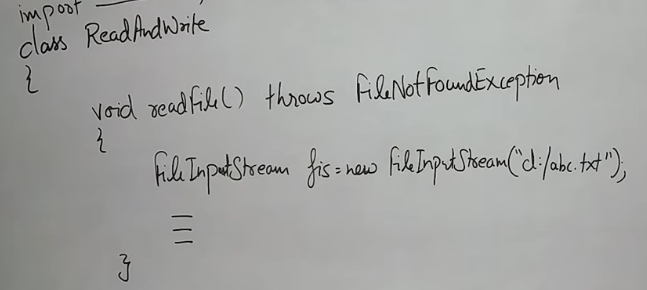 import
class ReadAndWrite
{
void readFile() throws FileNotFoundException
{
FileInputStream fis = new FileInputStream("d:/abc.txt");
}